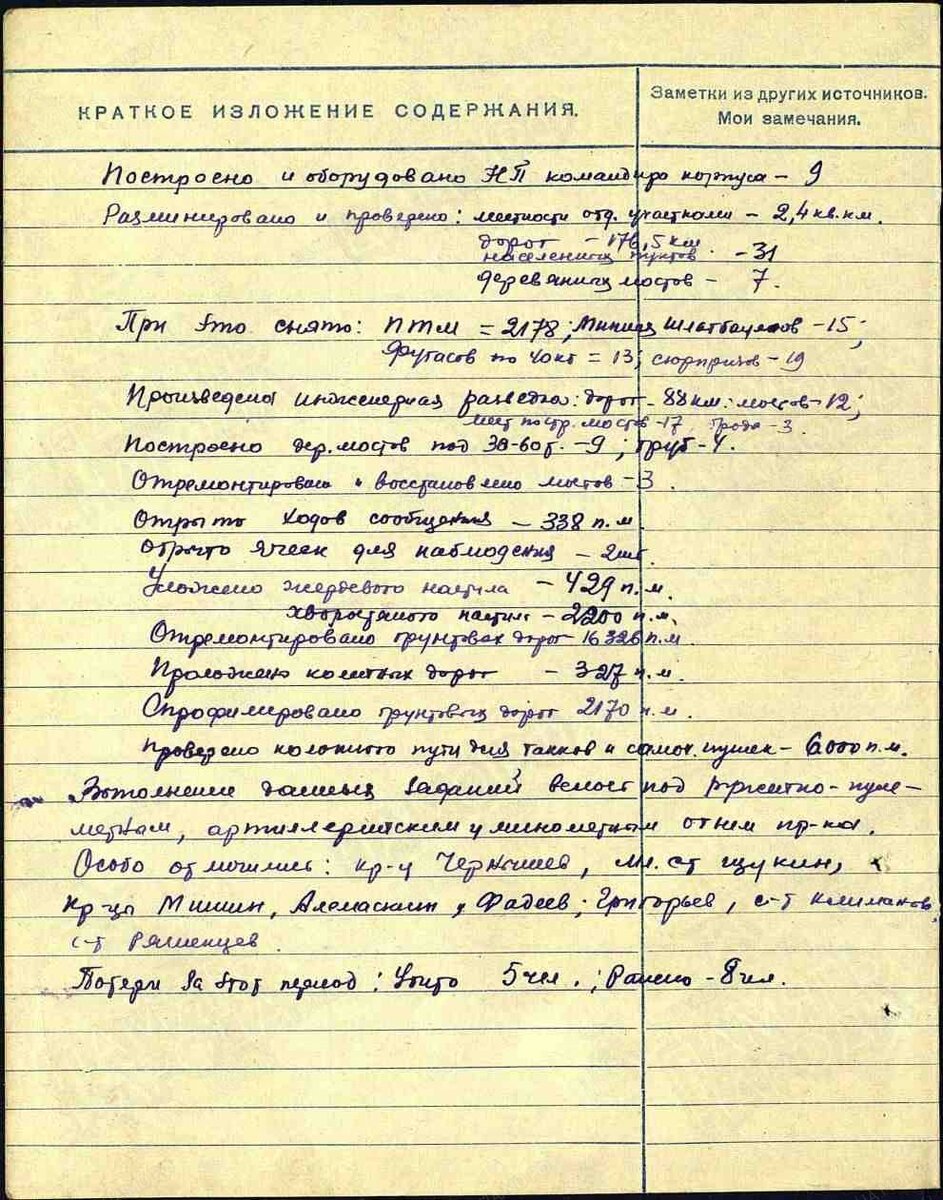 КРАТКОЕ ИЗЛОЖЕНИЕ СОДЕРЖАНИЯ.
Заметки из других источников.
Мои замечания.
Построено и оборудовано НП командира корпуса - 9
Разминировано и проверено: местности отд. участками - 2,4 кв. км.
дорог - 176,5 км.
населенных пунктов - 31
деревянных мостов - 7.
При это снято: ПТМ = 2178; шлагбаумов - 15;
Фугасов по 40кг = 13; сюрпризов - 19
Произведена инженерная разведка: дорог - 88 км: мостов - 12;
мест постр. мостов - 17, брода - 3.
Построено дер. мостов под 30-60т. - 9; труб - 4.
Отремонтировано и восстановлено мостов - 3.
Отрыто ходов сообщения - 338 п.м.
Отрыто ячеек для наблюдения - 2шт.
Уложено жердевого настила - 429 п.м.
хворостяного настила - 2200 п.м.
Отремонтировано грунтовых дорог 16326 п.м
Проложено колонных дорог - 327 п.м.
Спрофилировано грунтовых дорог 2170 п.м.
Проверено колонного пути для танков и самох. пушек - 6000 п.м.
Выполнение данных заданий велось под ружейно-пуле-
метным, артиллерийским и минометным огнем пр-ка.
Особо отличились: кр-ц Чернышев, мл. с-т Щукин,
кр-цы Мишин, Фадеев, Григорьев, с-т Климаков,
с-т Ряшенцев.
Потери за этот период: Убито 5 чел.; Ранено - 8 чел.